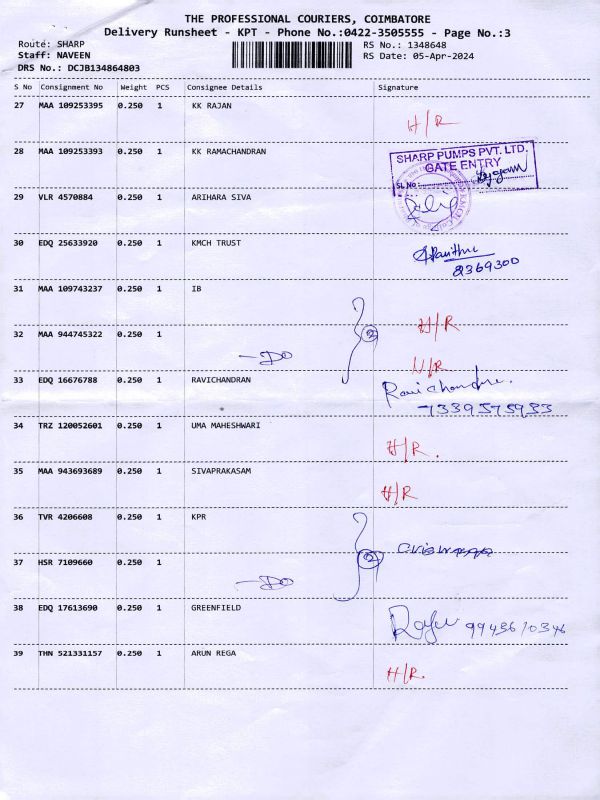 THE PROFESSIONAL COURIERS, COIMBATORE
Delivery Runsheet - KPT - Phone No.:0422-3505555 - Page No.:3
Route: SHARP
Staff: NAVEEN
DRS No.: DCJB134864803
RS No.: 1348648
RS Date: 05-Apr-2024
S No Consignment No Weight PCS Consignee Details Signature
27 MAA 109253395 0.250 1 KK RAJAN
H/R
28 MAA 109253393 0.250 1 KK RAMACHANDRAN
SHARP PUMPS PVT. LTD.
GATE ENTRY
SL No
29 VLR 4570884 0.250 1 ARIHARA SIVA
30 EDQ 25633920 0.250 1 KMCH TRUST
8369300
31 MAA 109743237 0.250 1 IB
H/R
32 MAA 944745322 0.250 1
- Do
2
N/R
33 EDQ 16676788 0.250 1 RAVICHANDRAN
Ravichandra.
7339575933
34 TRZ 120052601 0.250 1 UMA MAHESHWARI
H/R.
35 MAA 943693689 0.250 1 SIVAPRAKASAM
H/R
36 TVR 4206608 0.250 1 KPR
37 HSR 7109660 0.250 1
- Do
2
38 EDQ 17613690 0.250 1 GREENFIELD
9943610346
39 THN 521331157 0.250 1 ARUN REGA
H/R.